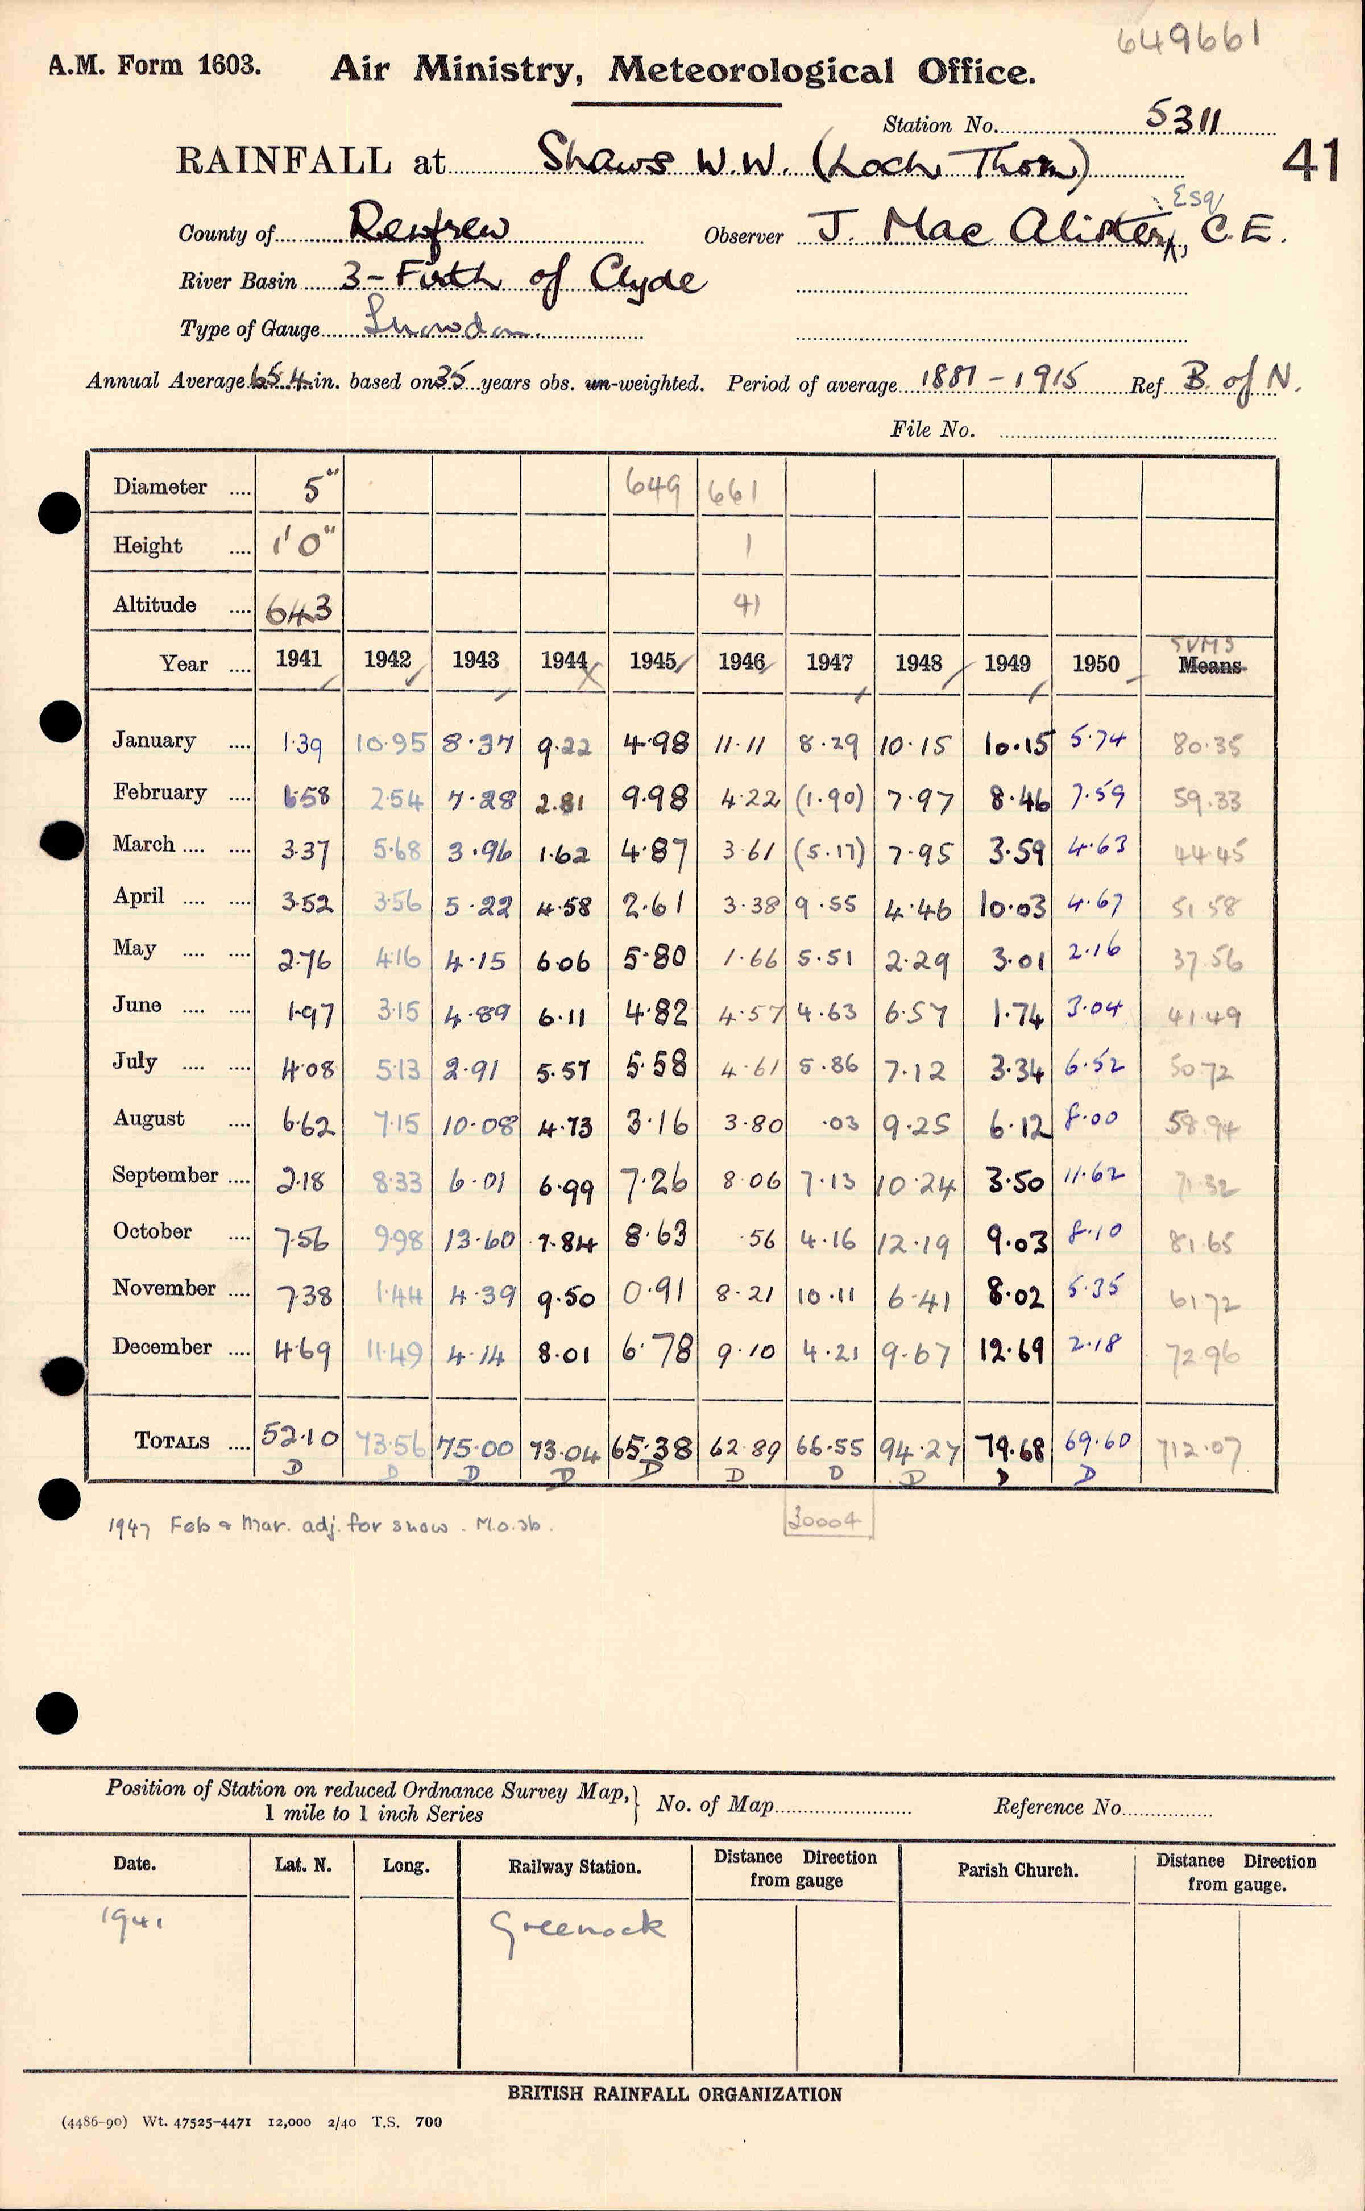 649661
A.M. Form 1603. Air Ministry, Meteorological Office.
Station No. 5311
RAINFALL at Shaws W.W. (Loch Thom) 41
Esq
County of Renfrew Observer J. Mac Alister, C.E.
River Basin 3 - Firth of Clyde
Type of Gauge Snowdon
Annual Average 65.4 in. based on 35 years obs. un-weighted. Period of average 1881 - 1915 Ref B. of N.
File No.
Diameter .... 5" 649 661
Height .... 1'0" 1
Altitude .... 643 41
SUMS
Year .... 1941 1942 1943 1944 1945 1946 1947 1948 1949 1950 Means
January .... 1.39 10.95 8.37 9.22 4.98 11.11 8.29 10.15 10.15 5.74 80.35
February .... 6.58 2.54 7.28 2.81 9.98 4.22 (1.90) 7.97 8.46 7.59 59.33
March .... .... 3.37 5.68 3.96 1.62 4.87 3.61 (5.17) 7.95 3.59 4.63 44.45
April .... .... 3.52 3.56 5.22 4.58 2.61 3.38 9.55 4.46 10.03 4.67 51.58
May .... .... 2.76 4.16 4.15 6.06 5.80 1.66 5.51 2.29 3.01 2.16 37.56
June .... .... 1.97 3.15 4.89 6.11 4.82 4.57 4.63 6.57 1.74 3.04 41.49
July .... .... 4.08 5.13 2.91 5.57 5.58 4.61 5.86 7.12 3.34 6.52 50.72
August .... 6.62 7.15 10.08 4.73 3.16 3.80 .03 9.25 6.12 8.00 58.94
September .... 2.18 8.33 6.01 6.99 7.26 8.06 7.13 10.24 3.50 11.62 71.32
October .... 7.56 9.98 13.60 7.84 8.63 .56 4.16 12.19 9.03 8.10 81.65
November .... 7.38 1.44 4.39 9.50 0.91 8.21 10.11 6.41 8.02 5.35 61.72
December .... 4.69 11.49 4.14 8.01 6.78 9.10 4.21 9.67 12.69 2.18 72.96
TOTALS .... 52.10 73.56 75.00 73.04 65.38 62.89 66.55 94.27 79.68 69.60 712.07
D D D D D D D D D D
1947 Feb & Mar. adj. for snow. M.O.3b. 30004
Position of Station on reduced Ordnance Survey Map, } No. of Map Reference No.
1 mile to 1 inch Series
Date. Lat. N. Long. Railway Station. Distance Direction from gauge Parish Church. Distance Direction from gauge.
1941 Greenock
BRITISH RAINFALL ORGANIZATION
(4486-90) Wt. 47525-4471 12,000 2/40 T.S. 700